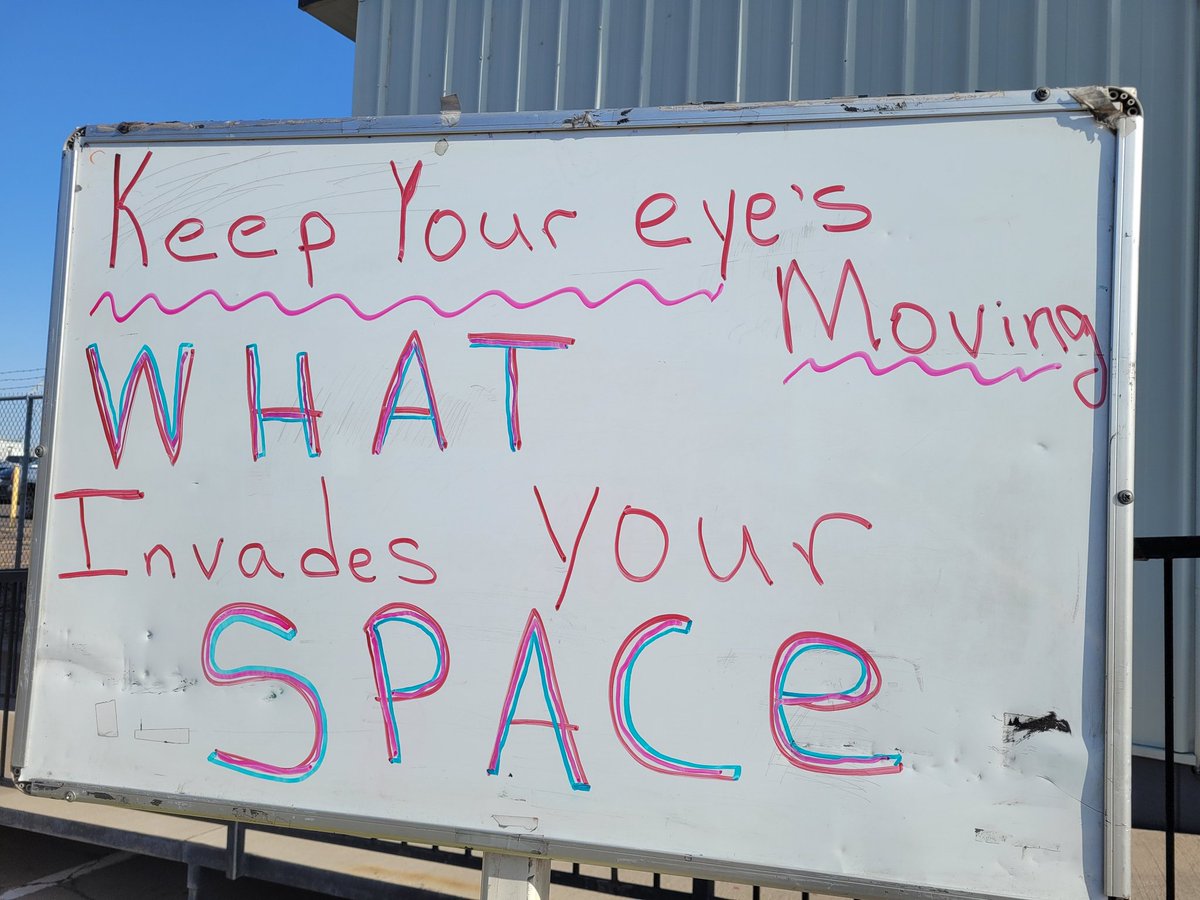 Keep Your eye's
Moving
WHAT
Invades your
SPACe